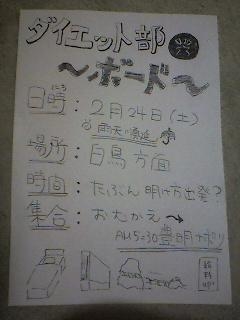 ダイエット部
〜ボード〜
日時(にちじ):2月24日(土)
雨天順延
場所:白鳥方面
時間:たぶん明け方出発?
集合:おむかえ→
AM5:30豊明サポリ